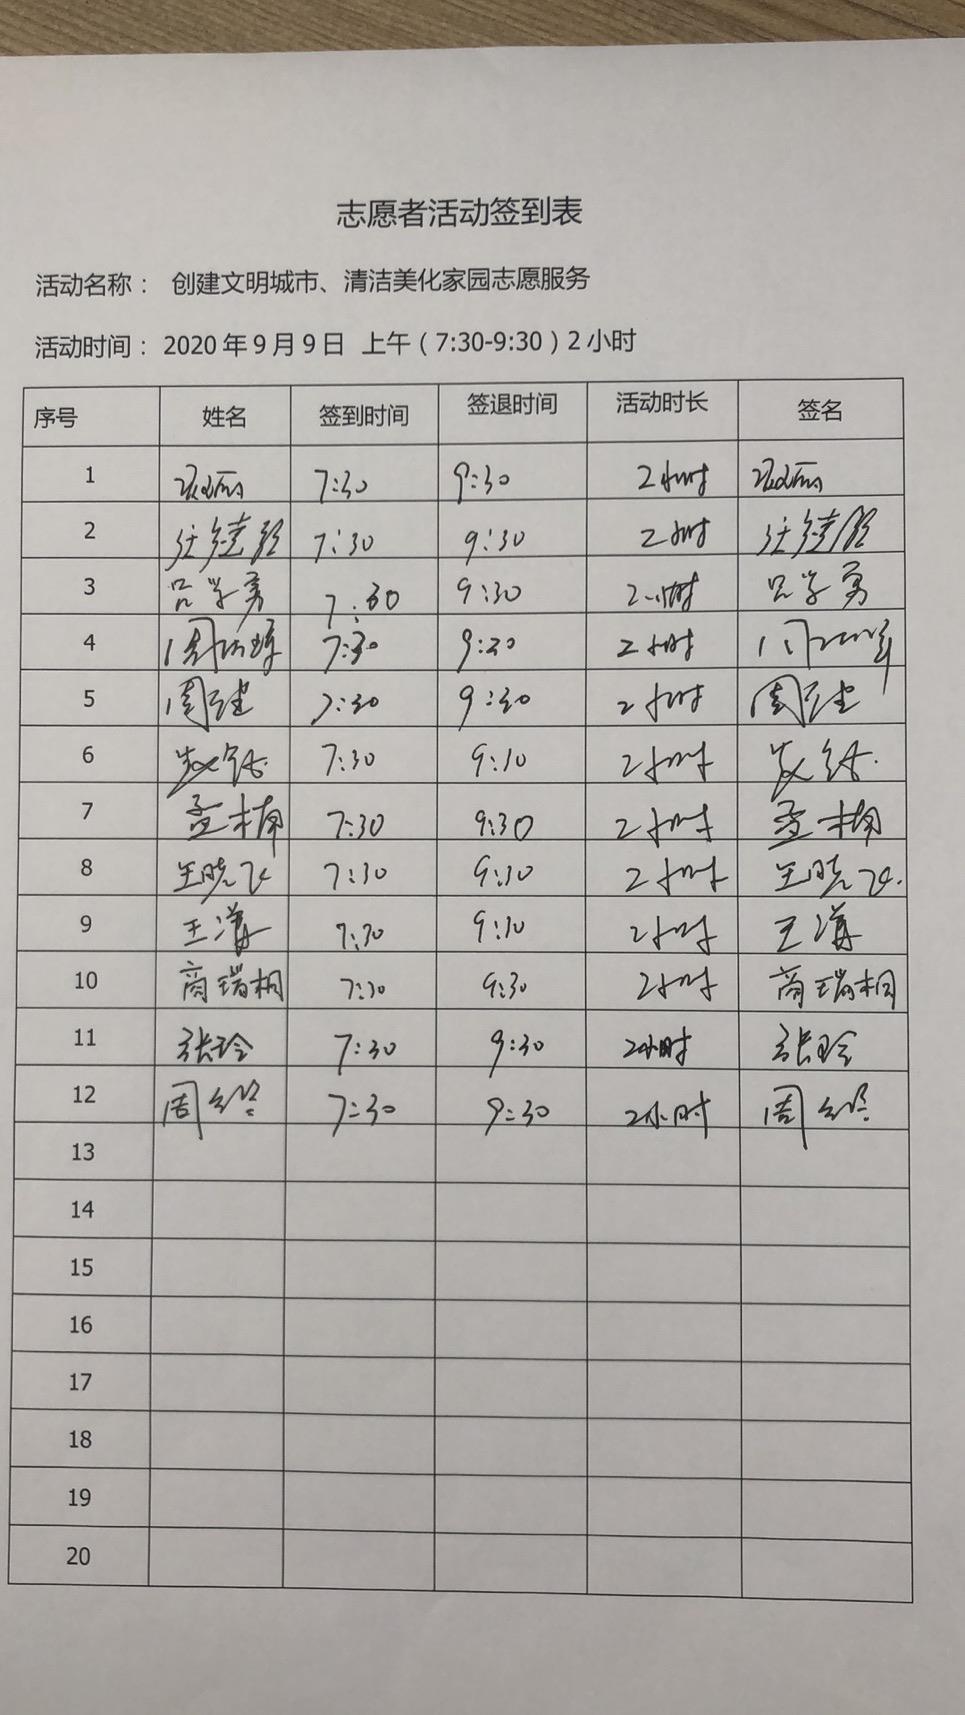 志愿者活动签到表
活动名称： 创建文明城市、清洁美化家园志愿服务
活动时间： 2020年9月9日 上午（7:30-9:30）2小时
序号 姓名 签到时间 签退时间 活动时长 签名
1 7:30 9:30 2小时
2 7:30 9:30 2小时
3 吕学勇 7:30 9:30 2小时 吕学勇
4 7:30 9:30 2小时
5 周建 7:30 9:30 2小时 周建
6 7:30 9:30 2小时
7 孟楠 7:30 9:30 2小时 孟楠
8 王晓飞 7:30 9:30 2小时 王晓飞.
9 王 7:30 9:30 2小时 王
10 商瑞桐 7:30 9:30 2小时 商瑞桐
11 张玲 7:30 9:30 2小时 张玲
12 周 7:30 9:30 2小时 周
13
14
15
16
17
18
19
20